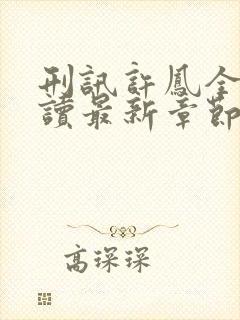 刑訊許鳳全
讀最新章節
高琛琛